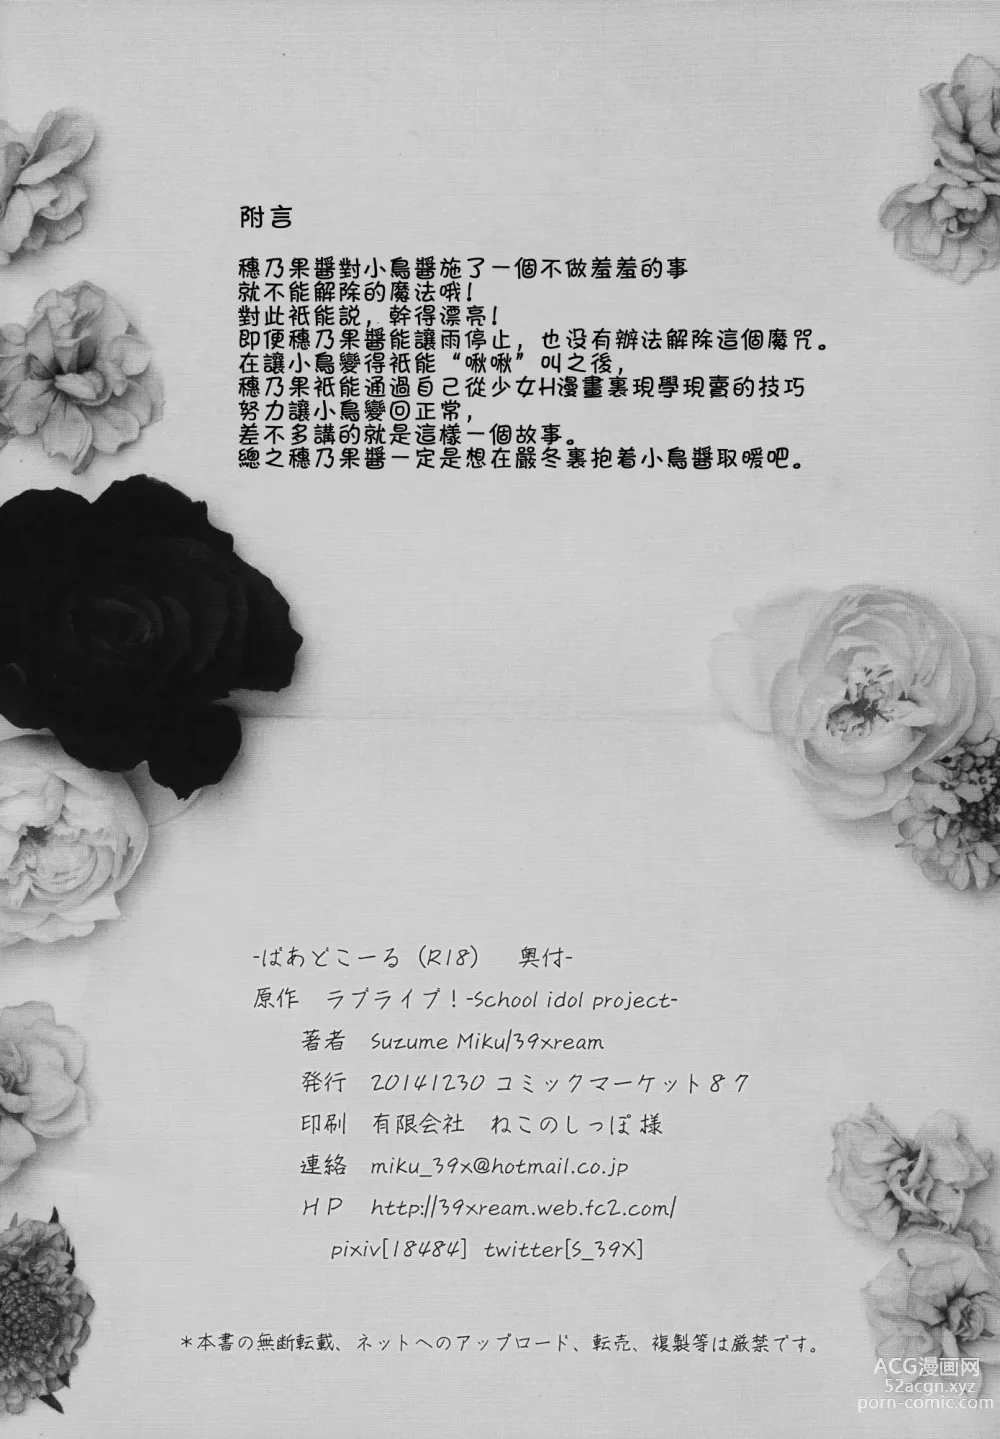 附言
穗乃果醬對小鳥醬施了一個不做羞羞的事
就不能解除的魔法哦！
對此衹能説，幹得漂亮！
即便穗乃果醬能讓雨停止，也没有辦法解除這個魔咒。
在讓小鳥變得衹能“啾啾”叫之後，
穗乃果衹能通過自己從少女H漫畫裏現學現賣的技巧
努力讓小鳥變回正常，
差不多講的就是這樣一個故事。
總之穗乃果醬一定是想在嚴冬裏抱着小鳥醬取暖吧。
-ばあどこーる（R18）　奥付-
原作　ラブライブ！-School idol project-
著者　Suzume Miku/39xream
発行　20141230 コミックマーケット８７
印刷　有限会社　ねこのしっぽ 様
連絡　miku_39x@hotmail.co.jp
ＨＰ　http://39xream.web.fc2.com/
pixiv[18484]　twitter[S_39X]
＊本書の無断転載、ネットへのアップロード、転売、複製等は厳禁です。
ACG漫画网
52acgn.xyz
porn-comic.com